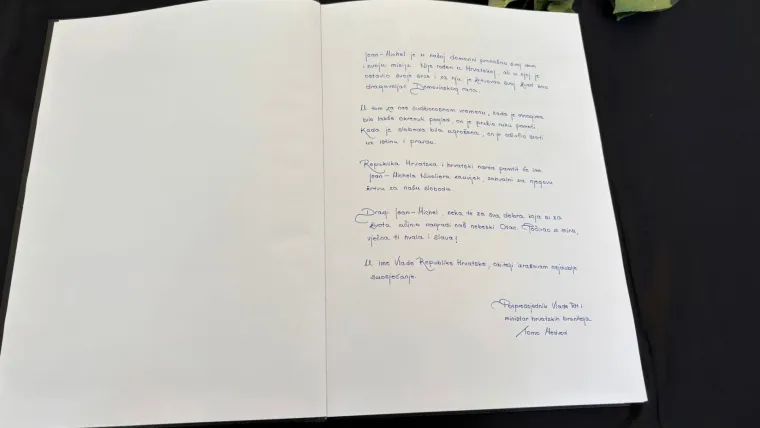 Jean-Michel je u našoj domovini pronašao svoj dom
i svoju misiju. Nije rođen u Hrvatskoj, ali u njoj je
ostavio svoje srce i za nju je žrtvovao svoj život kao
dragovoljac Domovinskog rata.
U tom za nas sudbonosnom vremenu, kada je mnogima
bilo lakše okrenuti pogled, on je pružio ruku pomoći.
Kada je sloboda bila ugrožena, on je odlučio stati
uz istinu i pravdu.
Republika Hrvatska i hrvatski narod pamtit će ime
Jean-Michela Nicoliera zauvijek, zahvalni za njegovu
žrtvu za našu slobodu.
Dragi Jean-Michel, neka te za sva dobra koja si za
života učinio nagradi naš nebeski Otac. Počivao u miru,
vječna ti hvala i slava!
U ime Vlade Republike Hrvatske, obitelji izražavam najdublje
suosjećanje.
Potpredsjednik Vlade RH i
ministar hrvatskih branitelja
Tomo Medved